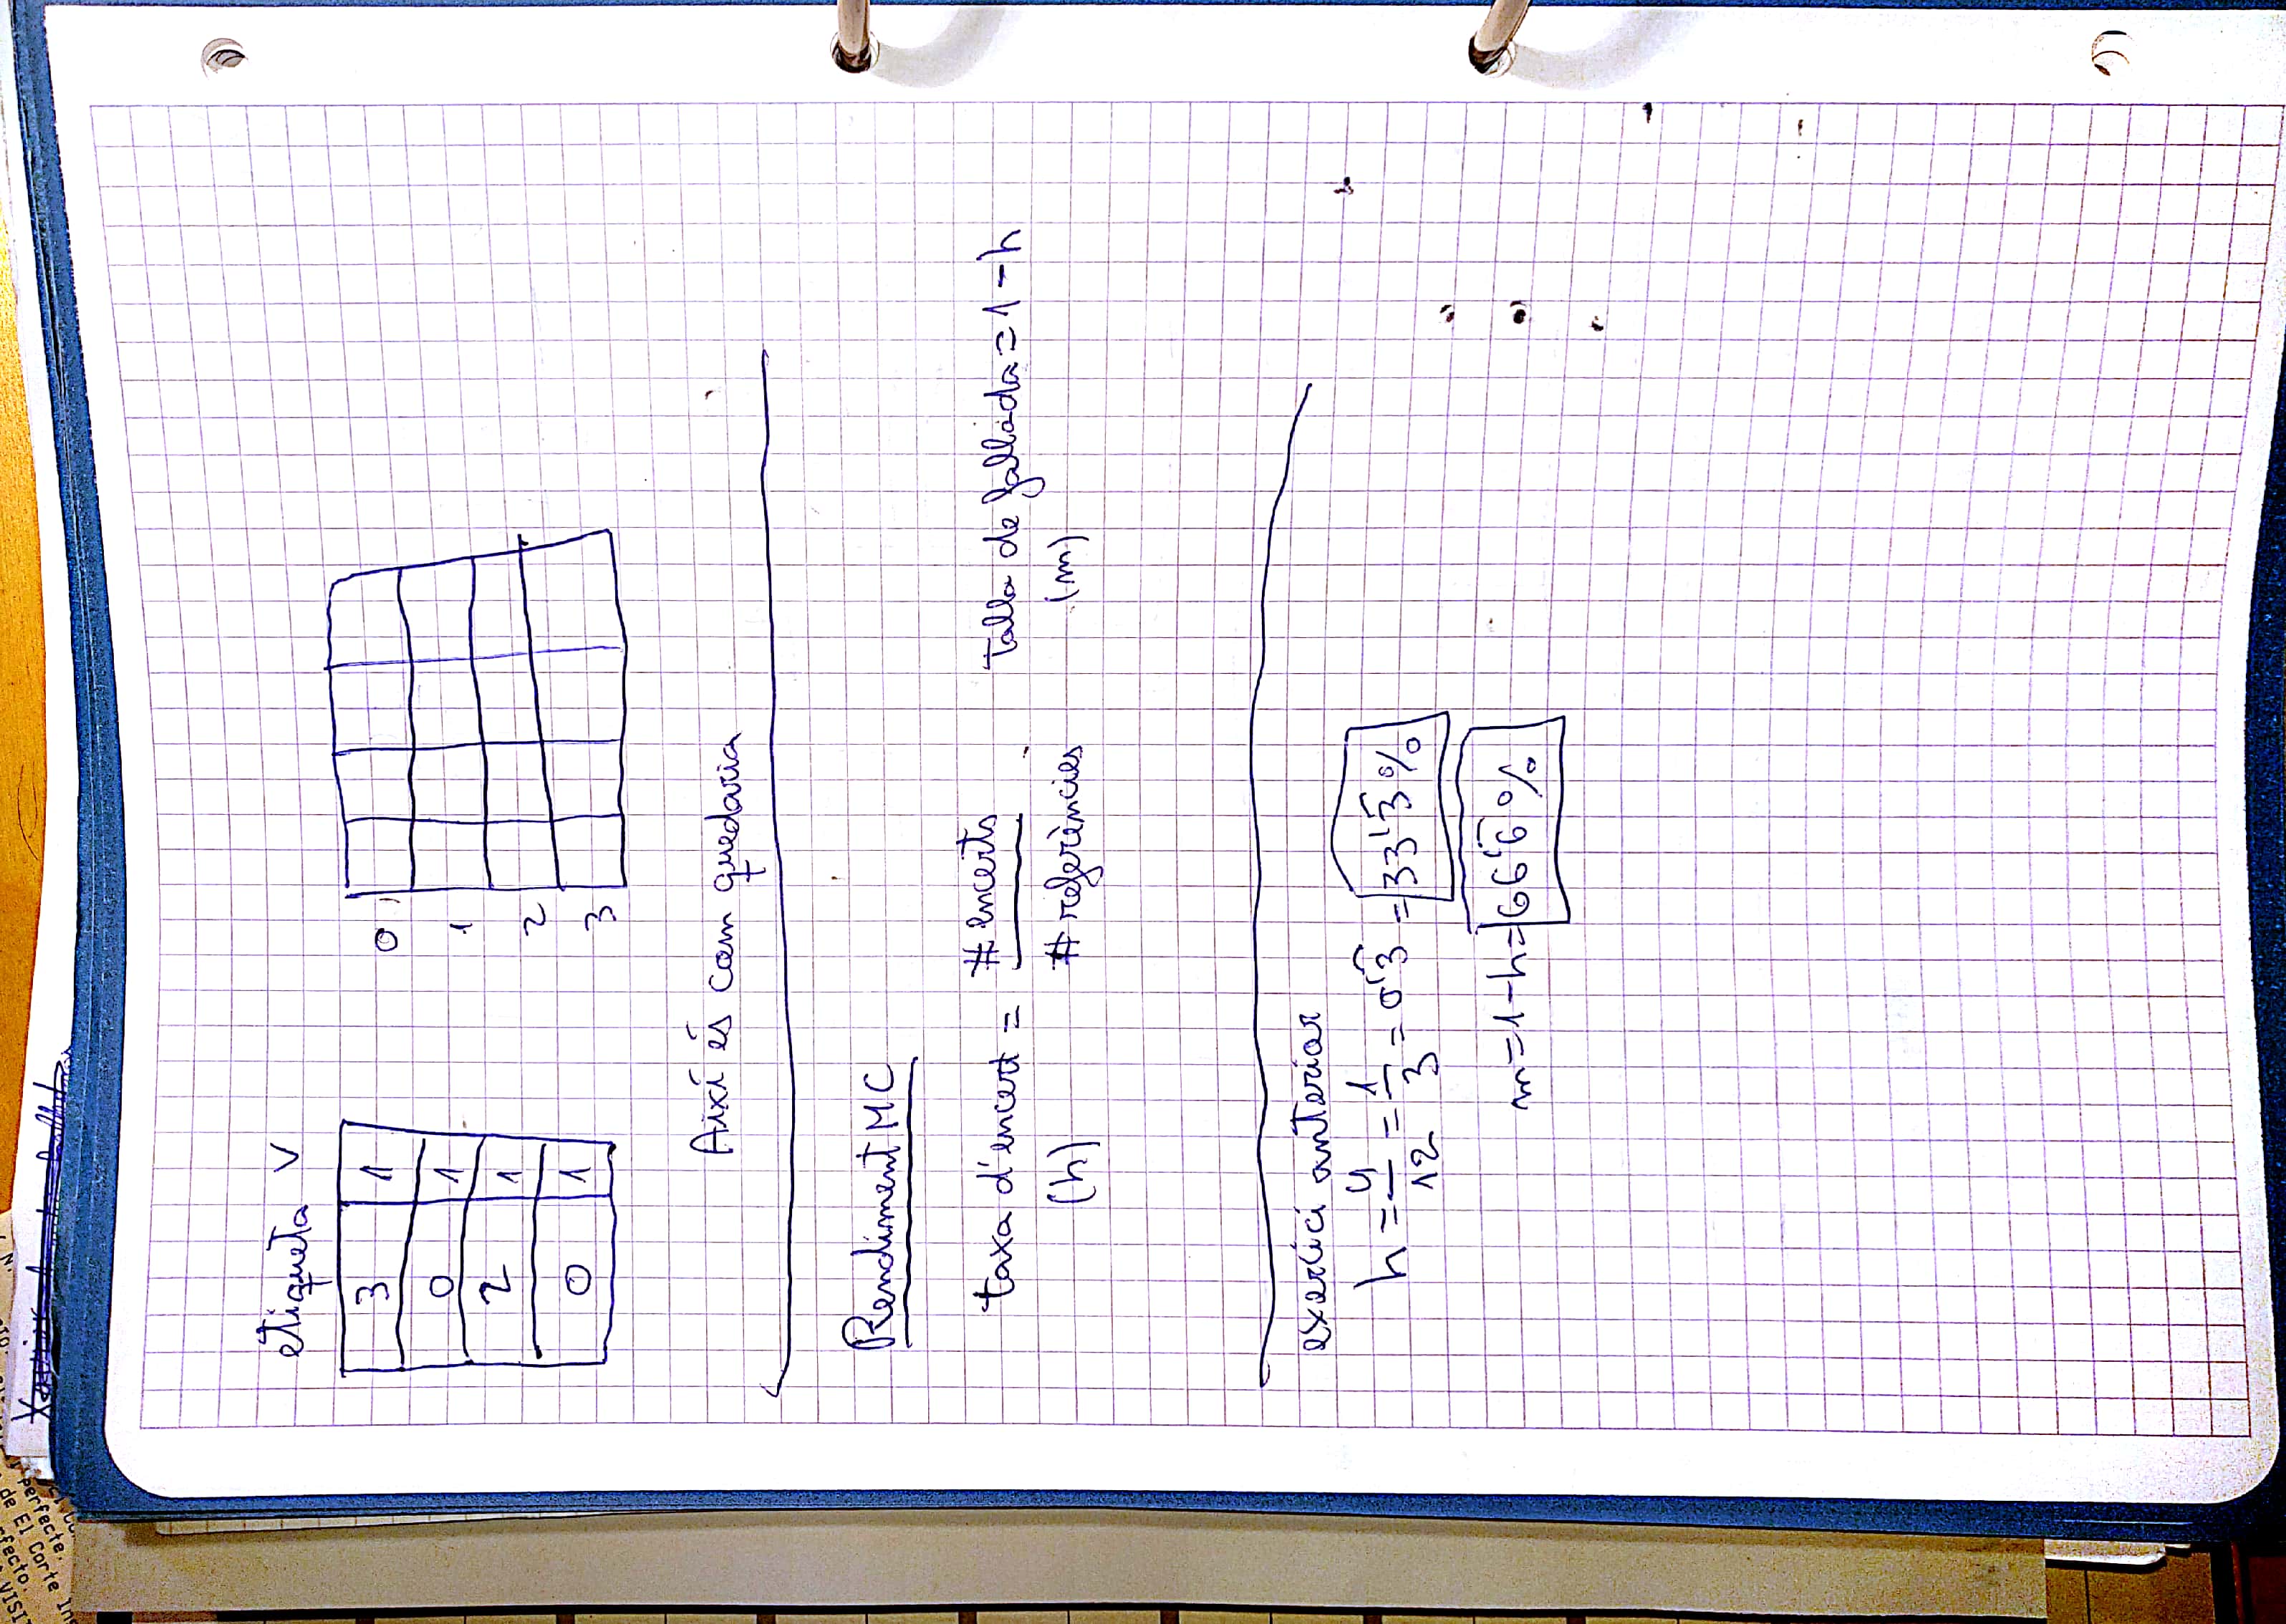 etiqueta V
3 1
0 1
2 1
0 1
0
1
2
3
Així és com quedaria
Rendiment MC
taxa d'encert = # encerts / # referències
(h)
talla de fallada = 1 - h
(m)
exercici anterior
h = 4/12 = 1/3 = 0'3̂ = 33'3̂ %
m = 1 - h = 66'6̂ %